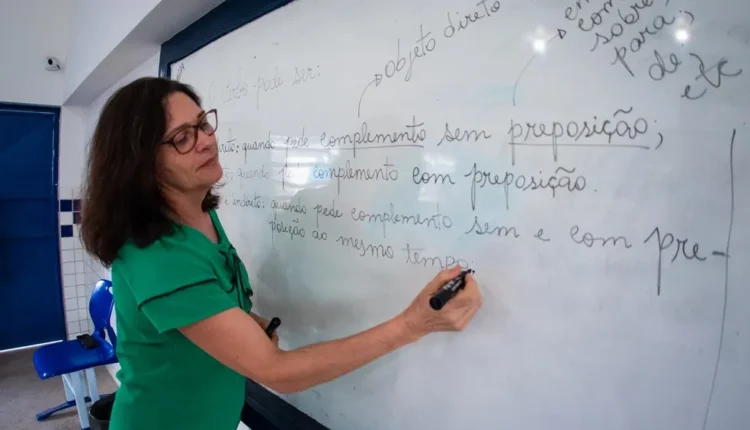 objeto direto
em
com
sobre,
para,
de
etc
pode ser:
quando pede complemento sem preposição;
quando complemento com preposição.
e indireto: quando pede complemento sem e com pre-
posição ao mesmo tempo.